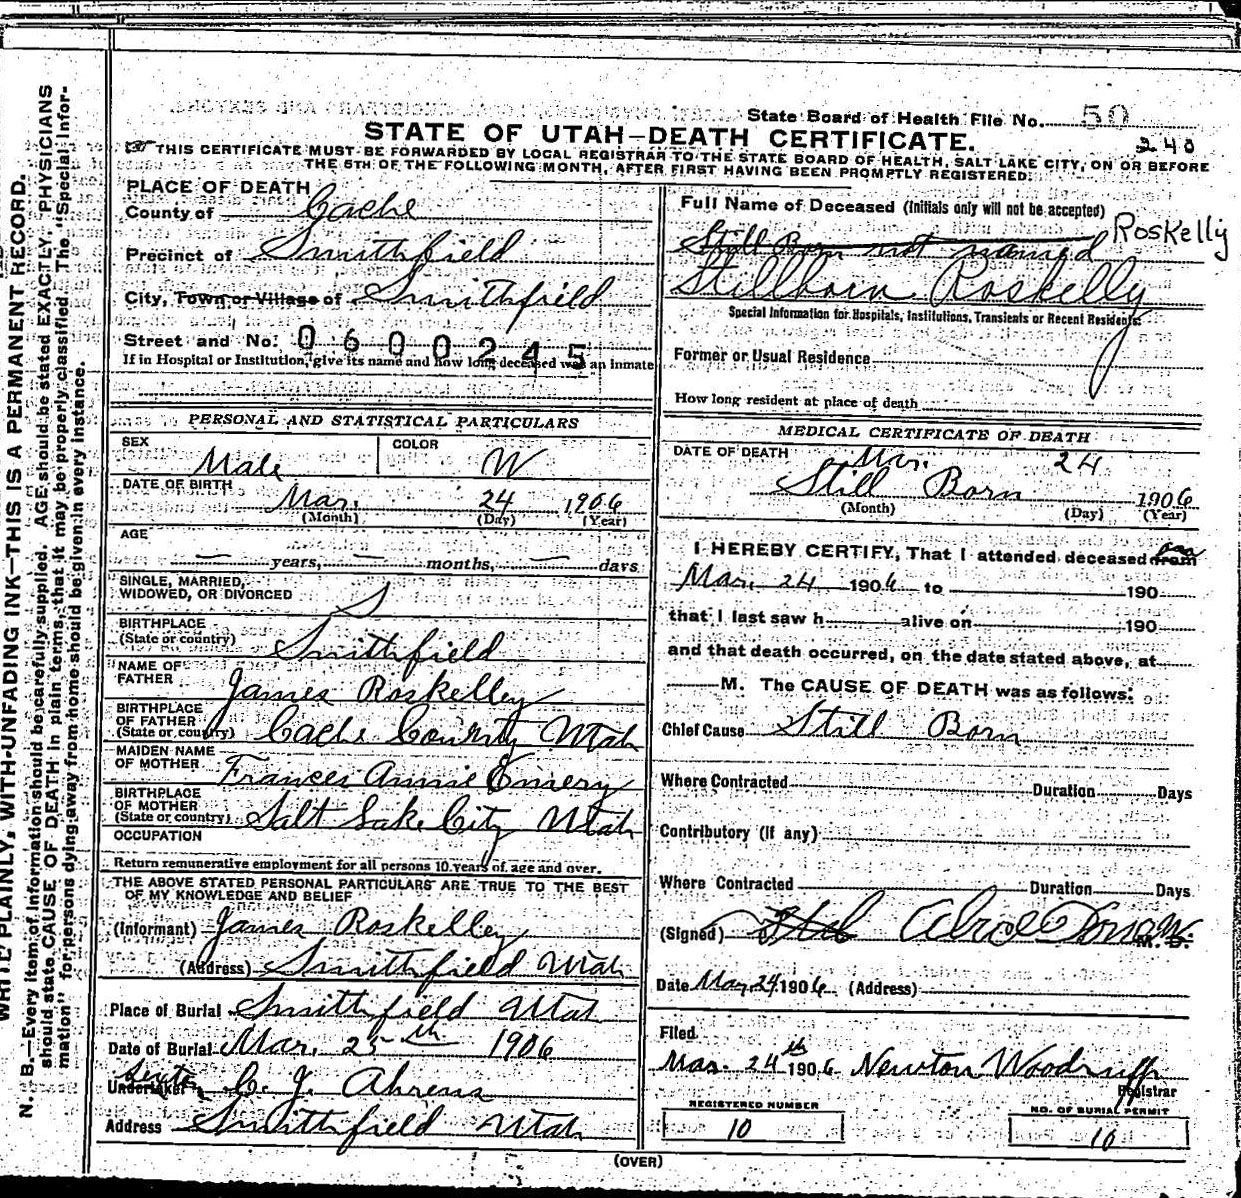 State Board of Health File No. 50
STATE OF UTAH—DEATH CERTIFICATE.
240
THIS CERTIFICATE MUST BE FORWARDED BY LOCAL REGISTRAR TO THE STATE BOARD OF HEALTH, SALT LAKE CITY, ON OR BEFORE
THE 5TH OF THE FOLLOWING MONTH, AFTER FIRST HAVING BEEN PROMPTLY REGISTERED.
WRITE PLAINLY, WITH UNFADING INK—THIS IS A PERMANENT RECORD.
N. B.—Every item of information should be carefully supplied. AGE should be stated EXACTLY. PHYSICIANS
should state CAUSE OF DEATH in plain terms, that it may be properly classified. The "Special Infor-
mation" for persons dying away from home should be given in every instance.
PLACE OF DEATH
County of Cache
Precinct of Smithfield
City, Town or Village of Smithfield
Street and No. 0600245
If in Hospital or Institution, give its name and how long deceased was an inmate
PERSONAL AND STATISTICAL PARTICULARS
SEX Male COLOR W
DATE OF BIRTH Mar. 24 1906
(Month) (Day) (Year)
AGE
— years, — months, — days
SINGLE, MARRIED,
WIDOWED, OR DIVORCED S
BIRTHPLACE
(State or country) Smithfield
NAME OF
FATHER James Roskelley
BIRTHPLACE
OF FATHER
(State or country) Cache County Utah
MAIDEN NAME
OF MOTHER Frances Annie Emery
BIRTHPLACE
OF MOTHER
(State or country) Salt Lake City Utah
OCCUPATION
Return remunerative employment for all persons 10 years of age and over.
THE ABOVE STATED PERSONAL PARTICULARS ARE TRUE TO THE BEST
OF MY KNOWLEDGE AND BELIEF
(Informant) James Roskelley
(Address) Smithfield Utah
Place of Burial Smithfield Utah
Date of Burial Mar. 25th 1906
Undertaker Sexton C. J. Ahrens
Address Smithfield Utah
Full Name of Deceased (Initials only will not be accepted)
Still Born not named Roskelly
Stillborn Roskelly
Special Information for Hospitals, Institutions, Transients or Recent Residents.
Former or Usual Residence
How long resident at place of death
MEDICAL CERTIFICATE OF DEATH
DATE OF DEATH Mar. 24
Still Born 1906
(Month) (Day) (Year)
I HEREBY CERTIFY, That I attended deceased from on
Mar. 24 1906 to 190
that I last saw h alive on 190
and that death occurred, on the date stated above, at
M. The CAUSE OF DEATH was as follows:
Chief Cause Still Born
Where Contracted Duration Days
Contributory (if any)
Where Contracted Duration Days
(Signed) M. D.
Date Mar. 24 1906 (Address)
Filed
Mar. 24th 1906 Newton Woodruff
Registrar
REGISTERED NUMBER
10
NO. OF BURIAL PERMIT
10
(OVER)